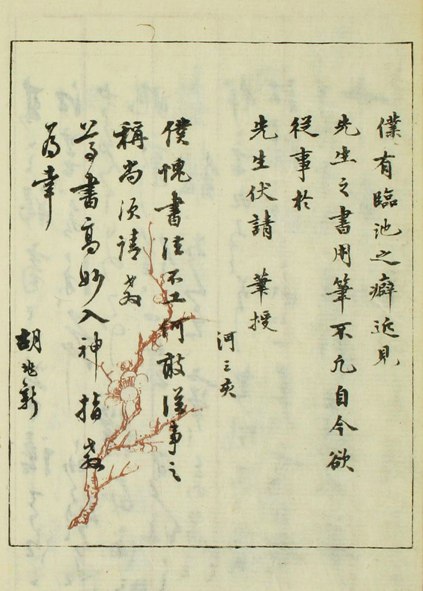 僕有臨池之癖近見
先生之書用筆不凡自今欲
従事於
先生伏請　筆授
河三亥
僕愧書法不工何敢從事之
稱尚須請教
尊書高妙入神指教
為幸
胡兆新